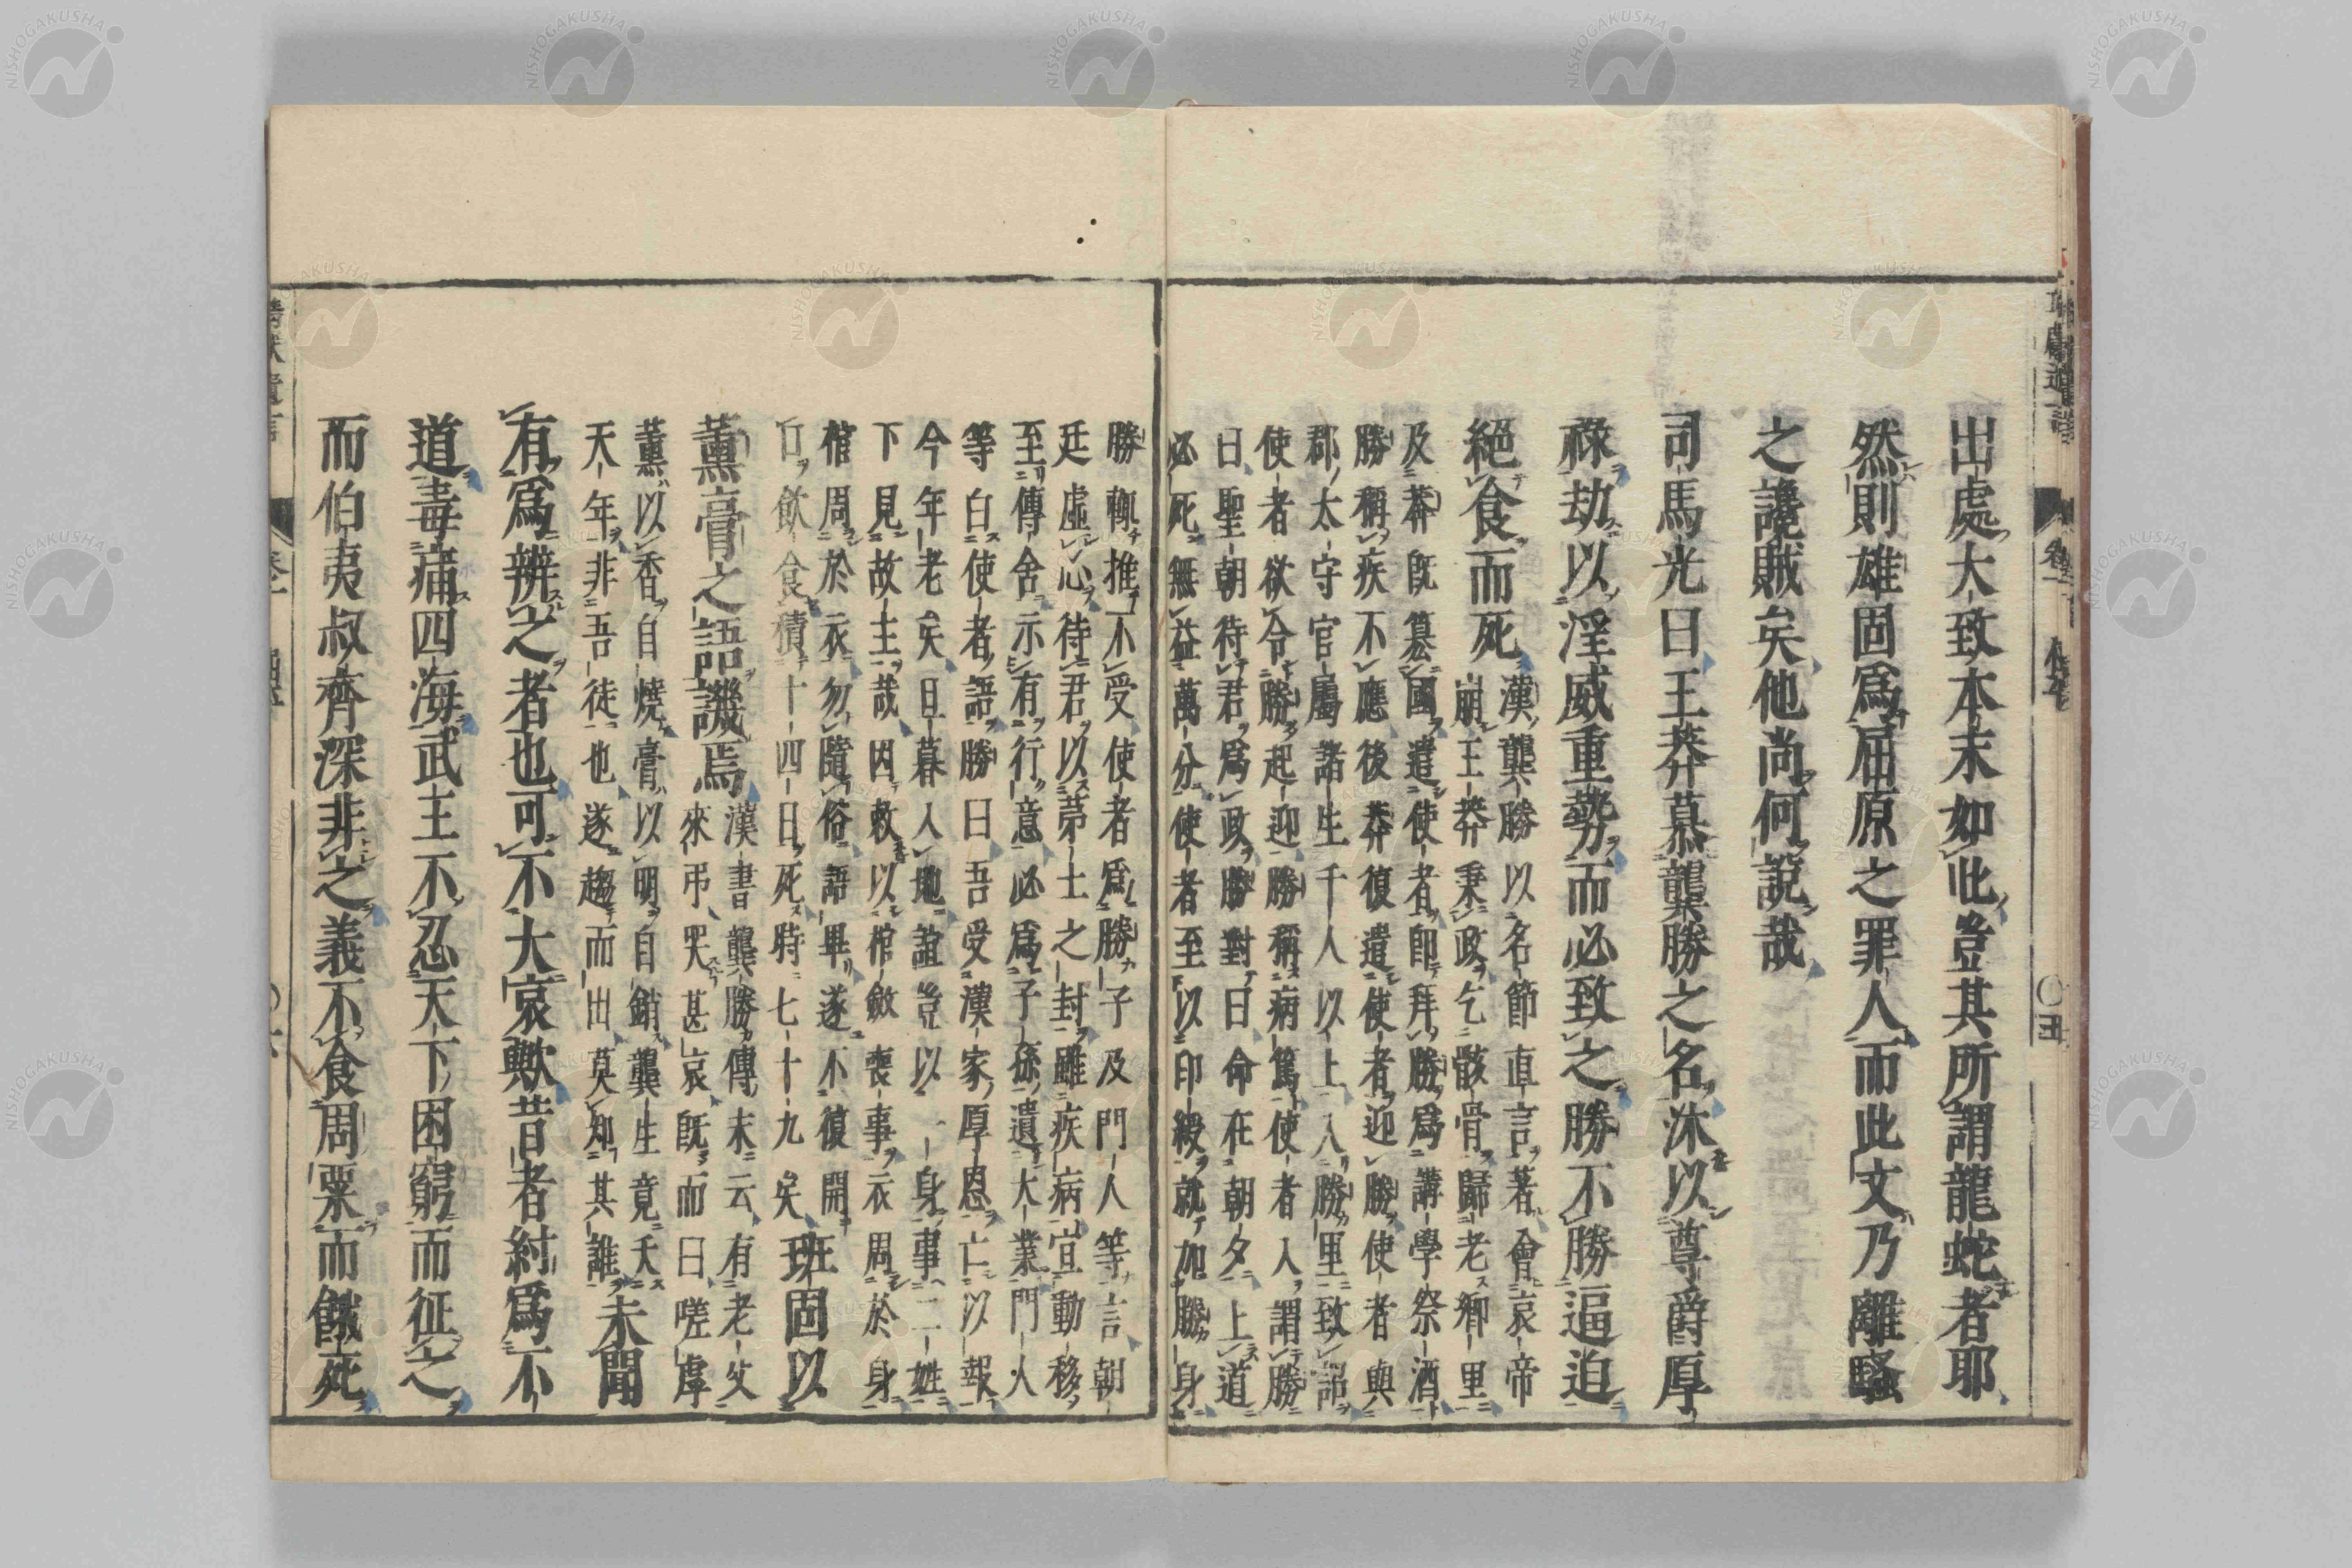 出處大致本末如此豈其所謂龍蛇者耶
然則雄固爲屈原之罪人而此文乃離騷
之讒賊矣他尚何說哉
司馬光曰王莽慕龔勝之名沐以尊爵厚
祿劫以淫威重勢而必致之勝不勝逼迫
絕食而死
漢龔勝以名節直言著會哀帝
崩王莽秉政乞骸骨歸老鄉里
及莽既簒國遣使者卽拜勝爲講學祭酒
勝稱疾不應後莽復遣使者迎勝使者與
郡太守官屬諸生千人以上入勝里致詔
使者欲令勝起迎勝稱病篤使者入謂勝
曰聖朝待君爲政勝對曰命在朝夕上道
必死無益萬分使者至以印綬就加勝身
勝輒推不受使者爲勝子及門人等言朝
廷虛心待君以茅土之封雖疾病宜動移
至傳舍示有行意必爲子孫遺大業門人
等白使者語勝曰吾受漢家厚恩亡以報
今年老矣旦暮入地誼豈以一身事二姓
下見故主哉因敕以棺斂喪事衣周於身
棺周於衣勿隨俗語畢遂不復開
口飮食積十四日死時七十九矣
班固以
薰膏之語譏焉
漢書龔勝傳末云有老父
來弔哭甚哀既而曰嗟虖
薰以香自燒膏以明自銷龔生竟夭
天年非吾徒也遂趨而出莫知其誰
未聞
有爲辨之者也可不大哀歟昔者紂爲不
道毒痡四海武王不忍天下困窮而征之
而伯夷叔齊深非之義不食周粟而餓死